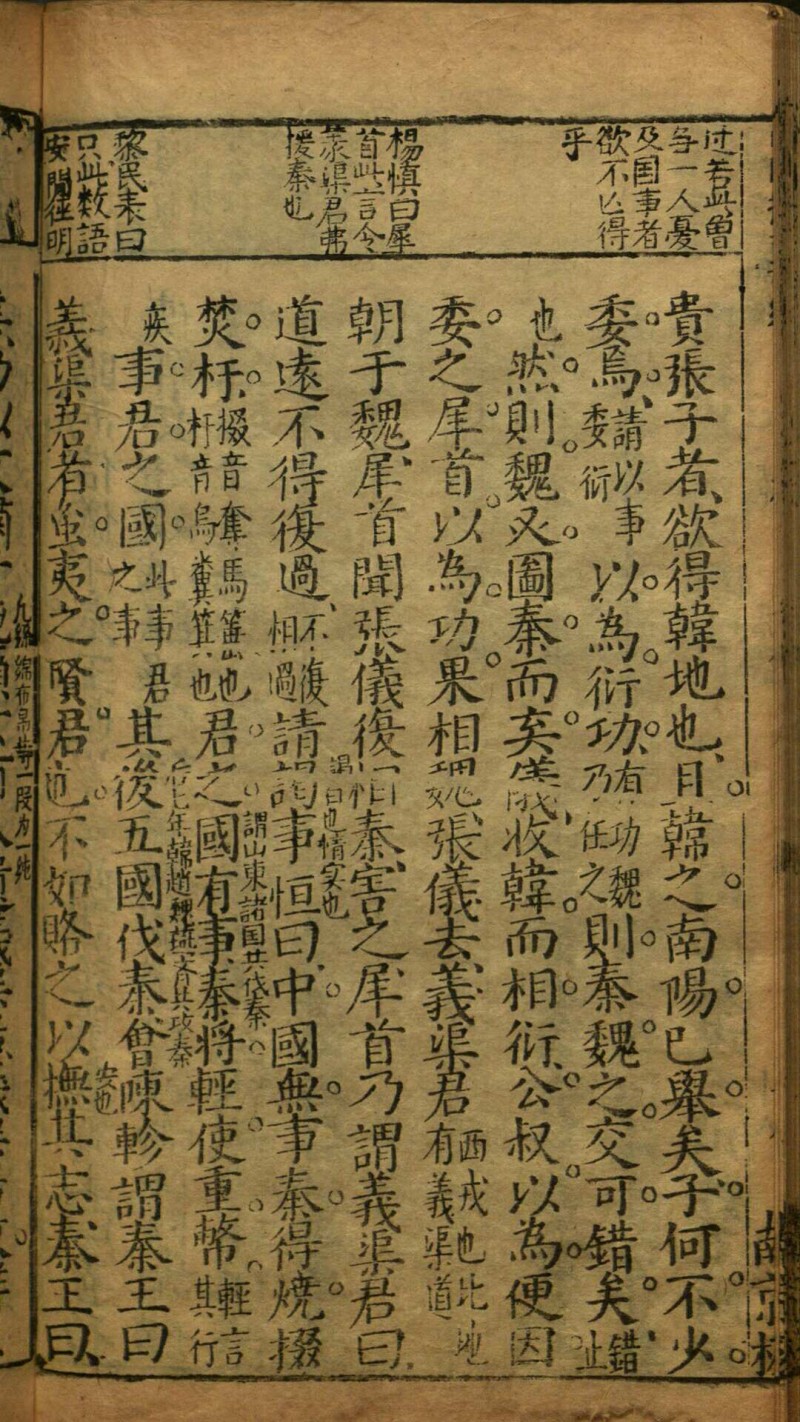 过若此曾
与一人憂
及国事者
欲不亡得
乎
楊慎曰犀
首此言令
義渠君弗
援秦也
黎民表曰
只此数語
安閒徑明
貴張子者欲得韓地也且韓之南陽已舉矣子何不少
委焉請以事委衍以為衍功有功魏乃任之則秦魏之交可錯矣錯止
也然則魏必圖秦而棄儀收韓而相衍公叔以為便因
委之犀首以為功果相魏張儀去義渠君西戎也北地有義渠道
朝于魏犀首聞張儀復相秦害之犀首乃謂義渠君曰
道遠不得復過不復相過請謁事情謁白也情实也曰中國無事秦得燒掇
焚杅掇音奪馬簻也杅音烏糞箕也君之國有事謂山東諸国共伐秦秦將輕使重幣輕言其行
疾事君之國此事君之事其後五國伐秦年韓趙魏燕齐共攻秦會陳軫謂秦王曰
義渠君者蛮夷之賢君也不如賂之以撫安也其志秦王曰
綿布帛等一段为一純